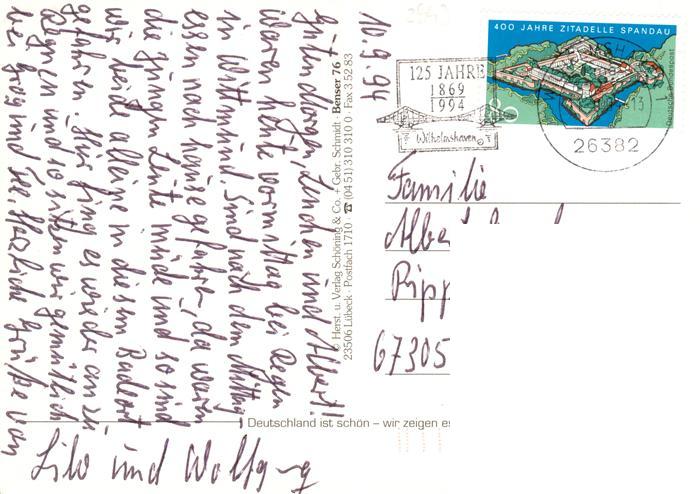 10.9.94
Guten Morgen, Lenchen und Albert!
Waren heute vormittag bei Regen
in Wittmund. Sind nach dem Mittag
essen nach hause gefahren, da waren
die jung. Leute müde und so sind
wir beide alleine in diesem Badeort
gefahren. Hier fing es wieder an zu
regnen und so sitzen wir gemütlich
bei Grog und Tee. Herzliche Grüße von
Lilo und Wolfgang
© Herst. u. Verlag Schöning & Co. + Gebr. Schmidt · Benser 76
23506 Lübeck · Postfach 1710 · ☎ (04 51) 310 310 0 · Fax 3 52 83
Deutschland ist schön – wir zeigen es
400 JAHRE ZITADELLE SPANDAU
Deutsche Bundespost
80
125 JAHRE
1869
1994
Wilhelmshaven
13
26382
Familie
Albe
Ripp
67305